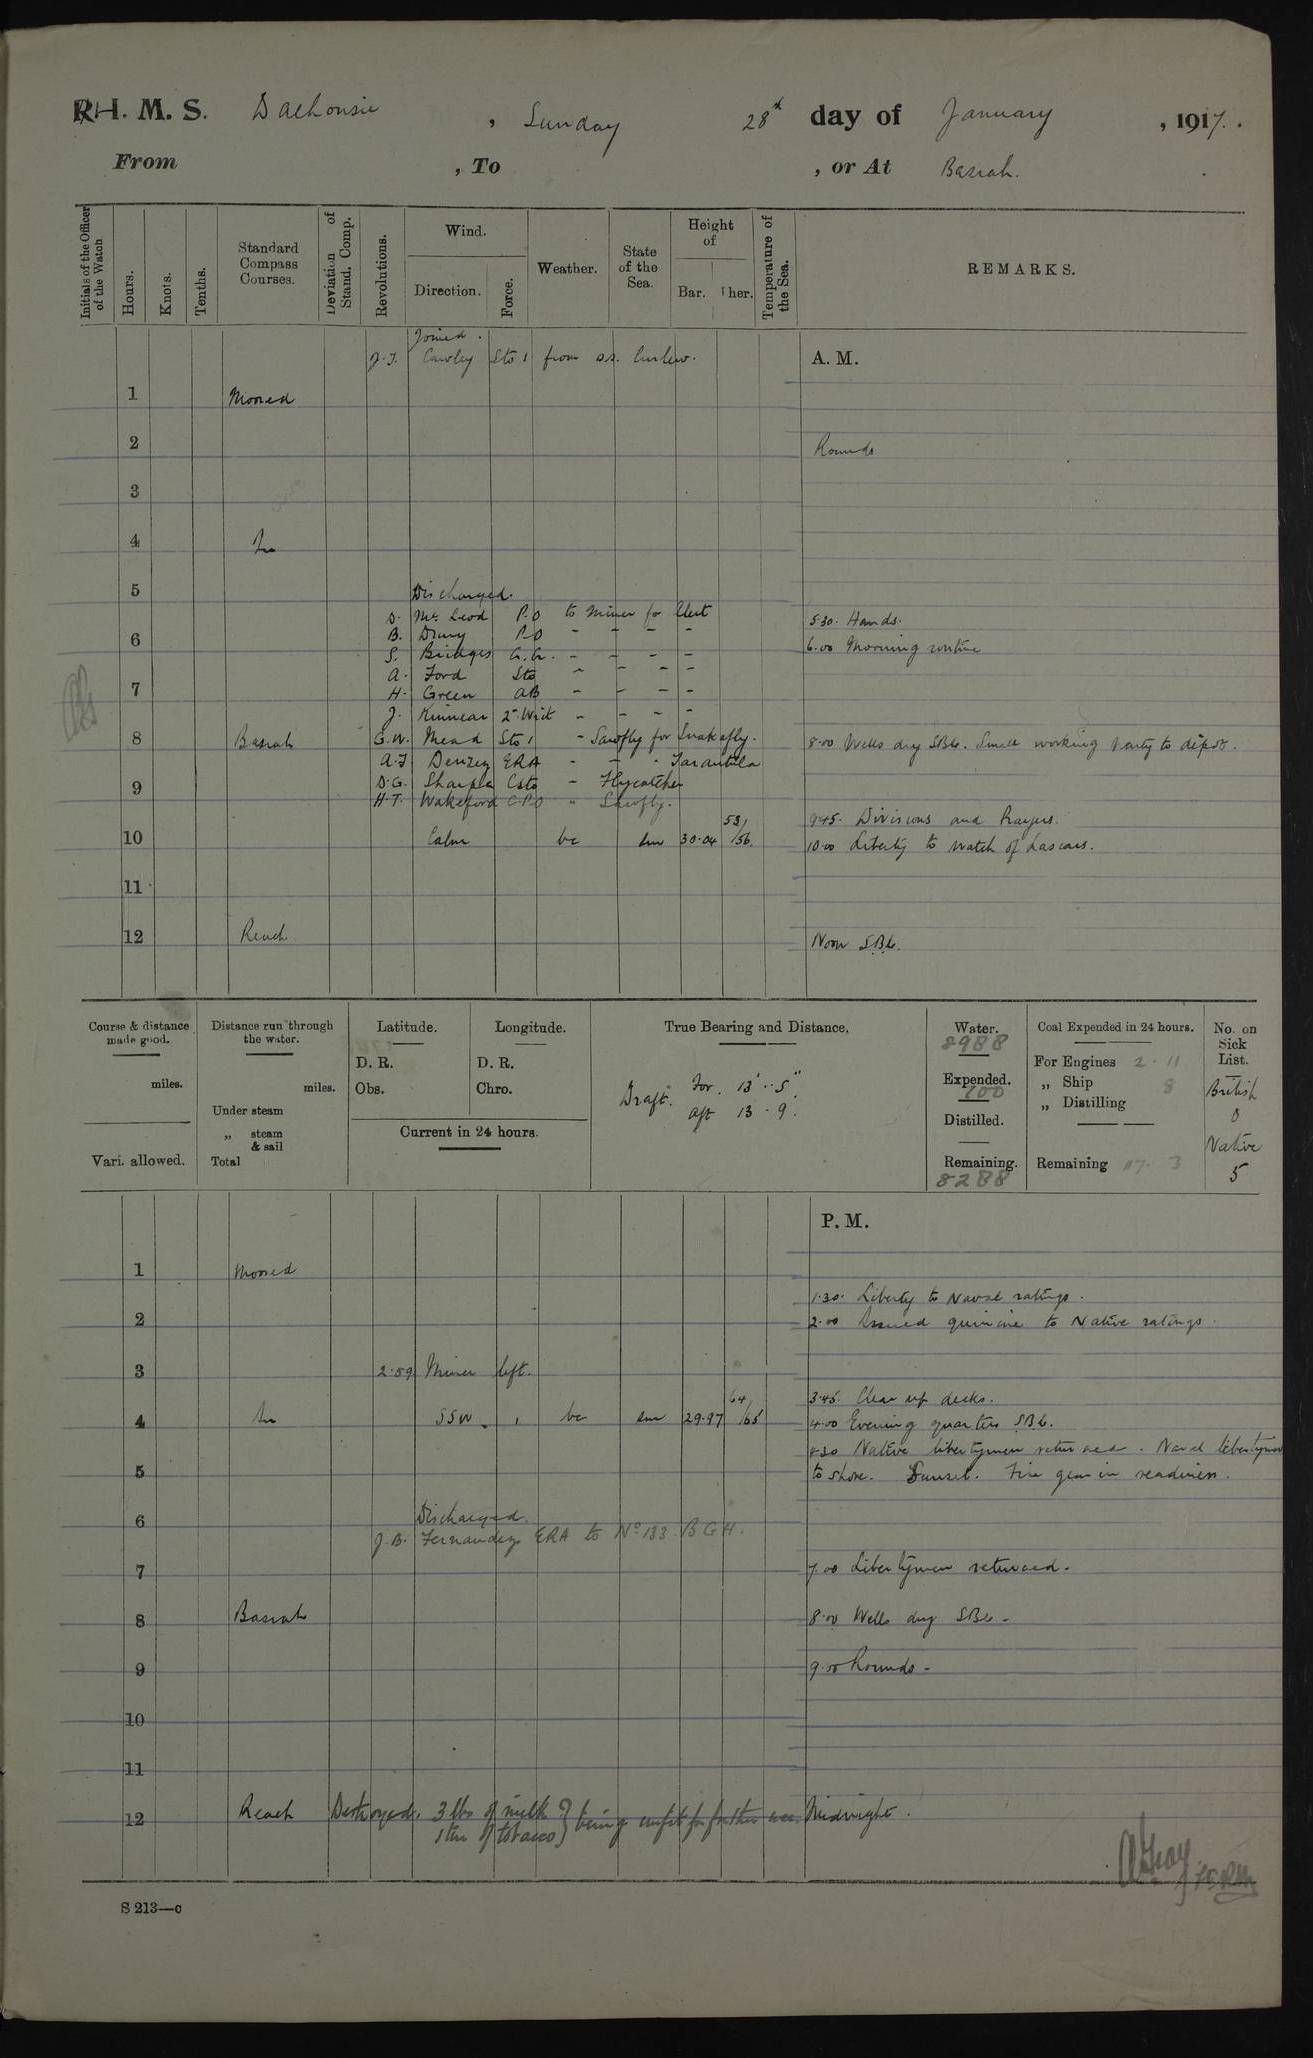 R. I. M. S. Dalhousie, Sunday 28th day of January, 1917.
From , To , or At Basrah.
Initials of the Officer of the Watch
Hours.
Knots.
Tenths.
Standard Compass Courses.
Deviation of Stand. Comp.
Revolutions.
Wind.
Direction.
Force.
Weather.
State of the Sea.
Height of
Bar.
Ther.
Temperature of the Sea.
REMARKS.
Joined.
J. J. Cawley Sto 1 from s.s. Curlew.
A. M.
1 Moored
2 Rounds
3
4 In
5 Discharged.
D. Mc Leod P.O to Miner for Alert
5.30. Hands.
B. Drury PO - - - -
6 6.00 Morning routine
S. Bridges - - - -
A. Ford Sto - - - -
7 H. Green AB - - - -
J. Kinnear - - - -
8 Basrah G.W. Mead Sto 1 - Sawfly for Snakefly.
8.00 Wells dry SBC. Small working party to depot.
A.J Denzey ERA - - - Tarantula
9 D.G. Sharple - Flycatcher
H.T. Wakeford C.P.O " Sawfly.
9.45. Divisions and Prayers.
10 Calm bc sm 30.04 53/56.
10.00 Liberty to watch of Lascars.
11
12 Reach Noon SBC.
Course & distance made good.
miles.
Vari. allowed.
Distance run through the water.
miles.
Under steam
„ steam & sail
Total
Latitude.
D. R.
Obs.
Longitude.
D. R.
Chro.
Current in 24 hours.
True Bearing and Distance.
Draft. For. 13' .. 5"
Aft 13 . 9.
Water.
8988
Expended.
700
Distilled.
Remaining.
8288
Coal Expended in 24 hours.
For Engines 2 . 11
„ Ship 8
„ Distilling
Remaining 3
No. on Sick List.
British
0
Native
5
P. M.
1 Moored
1.30. Liberty to Naval ratings.
2 2.00 Issued quinine to Native ratings.
3 2.59 Miner left.
3.45. Clear up decks.
4 In SSW 1 bc sm 29.97 64/65
4.00 Evening quarters SBC.
4.30 Native libertymen returned. Naval libertymen
5 to shore. Sunset. Fire gear in readiness.
6 Discharged.
J. B. Fernandez ERA to No 133 B G H.
7 7.00 Libertymen returned.
8 Basrah 8.00 Wells dry SBC -
9 9.00 Rounds -
10
11
12 Reach Destroyed. 3 lbs of milk } being unfit for further use. Midnight.
1 tin of tobacco
S 213—c